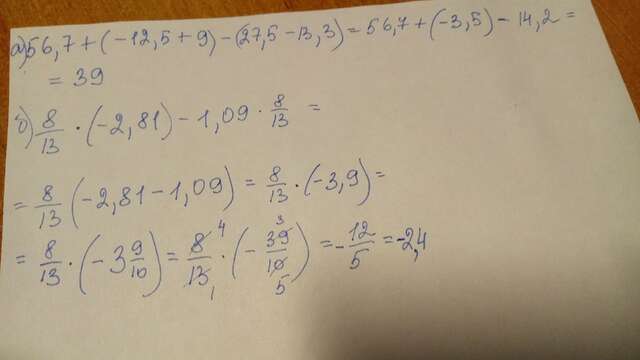 а) 56,7 + (-12,5 + 9) - (27,5 - 13,3) = 56,7 + (-3,5) - 14,2 =
= 39
б) 8/13 · (-2,81) - 1,09 · 8/13 =
= 8/13 (-2,81 - 1,09) = 8/13 · (-3,9) =
= 8/13 · (-3 9/10) = 8 4/13 1 · (-39 3/10 5) = -12/5 = -2,4